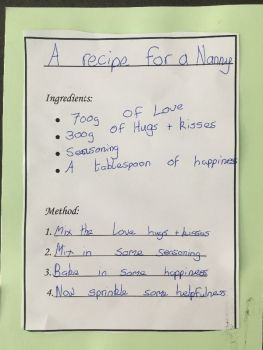 A recipe for a Nanny
Ingredients:
• 700g of Love
• 300g of Hugs + kisses
• Seasoning
• A tablespoon of happiness
Method:
1. Mix the Love hugs + kisses
2. Mix in some seasoning
3. Bake in some happiness
4. Now sprinkle some helpfulness